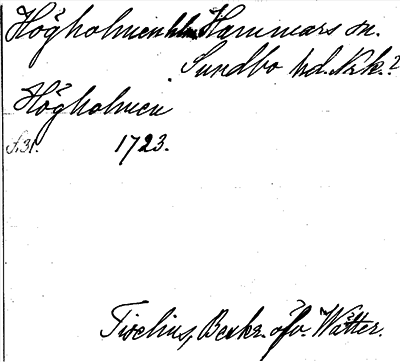 Högholmen Hammars sn.
Sundbo hd. Nrk.?
Högholmen
s. 31. 1723.
Tiselius, Beskr. öfv. Wätter.